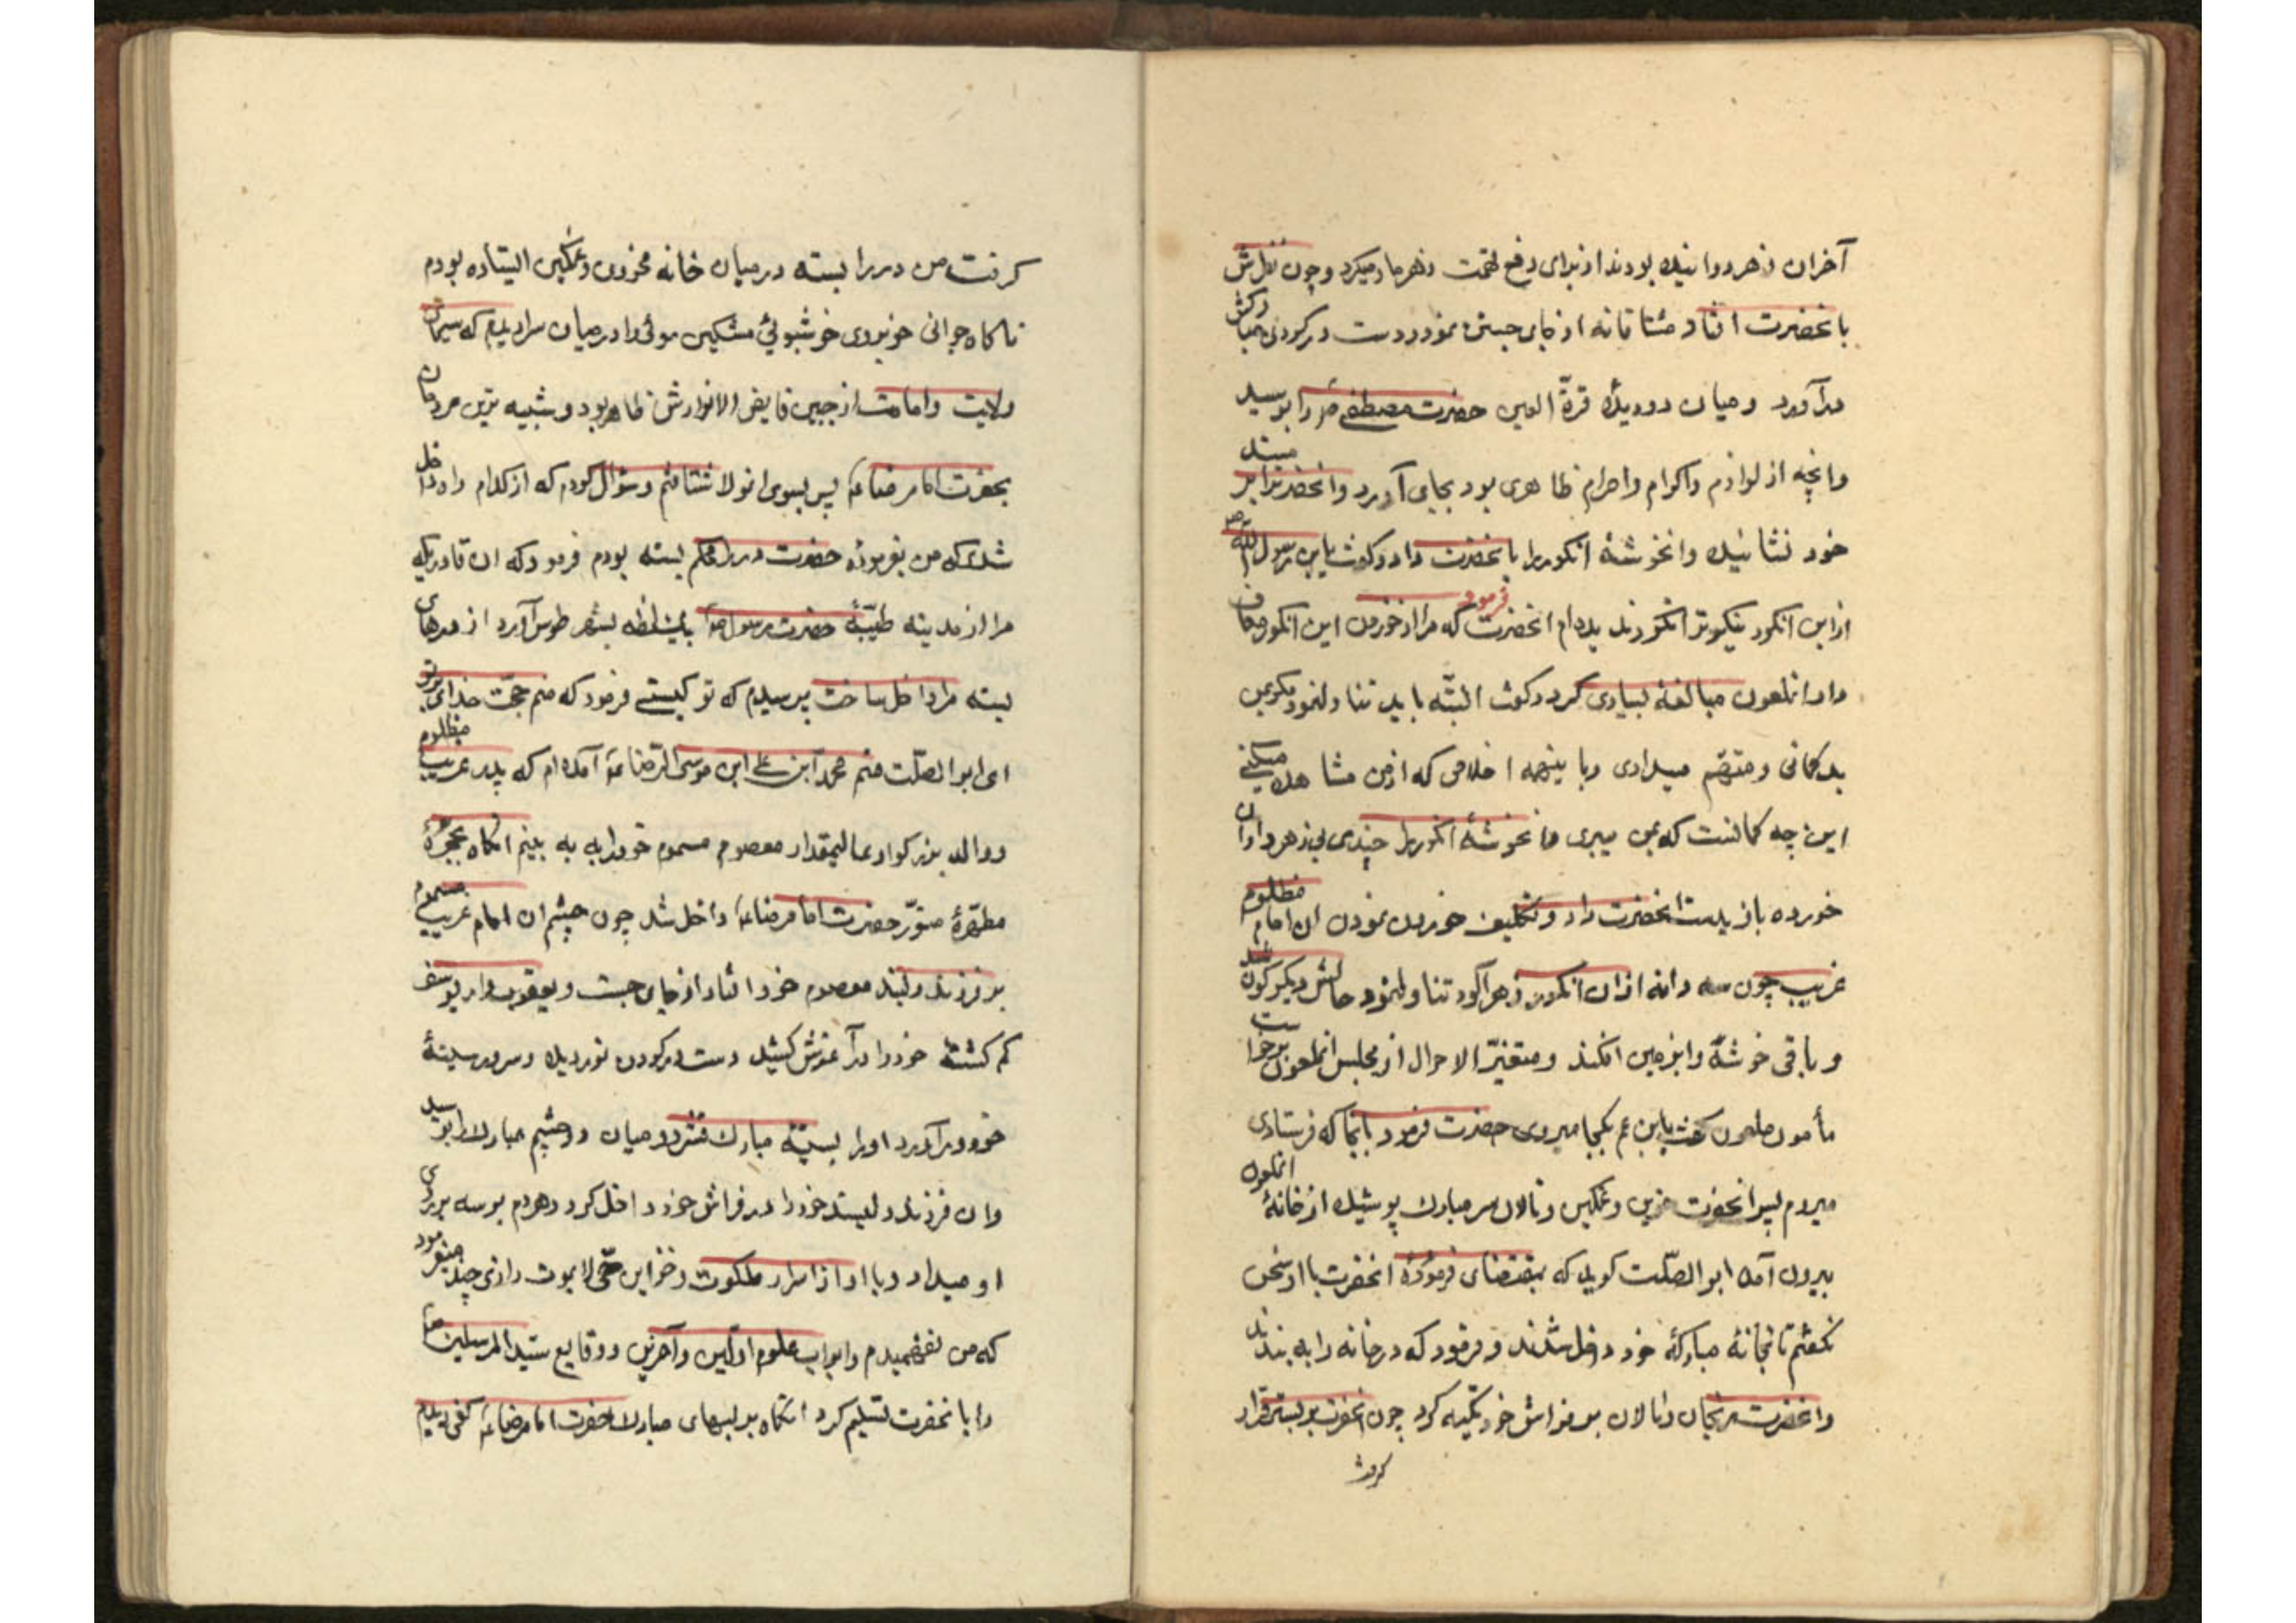 آخران زهر دوانیده بودند از برای دفع تهمت زهر مادمیکرد و چون نظرش
بانحضرت افتاد مشتاقانه از جای جست نمود و دست در کردن مبارکش
درآورد و میان دو دیدهٔ قرّة العین حضرت مصطفی ص را بوسید
وانچه از لوازم واکرام واحرام ظاهری بود بجای آورد وانحضرترا بر مسند
خود نشانید وانخوشهٔ انکور را بانحضرت داد و کفت یابن رسول الله ص
ازاین انکور نیکوتر انکور ندیده ام انحضرت فرمود که مرا از خوردن این انکور معاف
دار انملعون مبالغهٔ بسیاری کرد و کفت البتّه باید تناول نمود مکر بمن
بدکمانی و متهّم میداری وبا اینهمه اخلاص که ازمن مشاهده میکنی
این چه کمانست که بمن میبری وانخوشهٔ انکور را چندی بی زهر ازان
خورده باز بدست انحضرت داد و تکلیف خوردن نمودن ان امام مظلوم
غریب چون سه دانه ازان انکور زهرآلود تناول نمود حالش دیکرکون شد
و باقی خوشه را بزمین افکند و متغیّر الاحوال از مجلس انملعون برخواست
مأمون ملعون کفت یابن عم بکجا میروی حضرت فرمود بانجا که فرستادی
میروم پس انحضرت حزین و غمکین و نالان سر مبارک پوشیده ازخانهٔ انملعون
بیرون آمد ابوالصّلت کوید که بمقتضای فرمودهٔ انحضرت با او سخن
نکفتم تا بخانهٔ مبارکهٔ خود داخل شدند و فرمود که در خانه را به بندید
وانحضرت رنجان ونالان بر فراش خود تکیه کرد چون انحضرت بر بستر قرار
کرفت
کرفت من در را بسته در میان خانه محزون و غمکین ایستاده بودم
ناکاه جوانی خوبروی خوشبوئی مشکین موئی را در میان سرا دیدم که سیمای
ولایت وامامت از جبین فایض الانوارش ظاهر بود و شبیه ترین مردمان
بحضرت امام رضا ع پس بسوی انمولا شتافتم و سؤال کردم که از کدام راه داخل
شدی که من بفرموده حضرت در را محکم بسته بودم فرمود که ان قادریکه
مرا از مدینه طیّبهٔ حضرت رسول ص بیک لحظه بشهر طوس آورد از درهای
بسته مرا داخل ساخت پرسیدم که تو کیستی فرمود که منم حجّت خدای برتو
ای ابوالصّلت منم محمد ابن علی ابن موسی الرّضا ع آمده ام که پدر غریب مظلوم
ووالد بزرکوار عالیمقدار معصوم مسموم خود را به به بینم انکاه بحجرهٔ
مطهّرهٔ منوّر حضرت امام رضا ع داخل شد چون چشم ان امام غریب مسموم
بر فرزند دلبند معصوم خود افتاد از جای جست و یعقوب وار یوسف
کم کشته خود را درآغوش کشید دست در کردن نور دیده وسرور سینهٔ
خود درآورد اورا بسینه مبارک فشرد و میان دو چشم مبارک را بوسید
وان فرزند دلبند خود را در فراش خود داخل کرد و هر دم بوسه بر روی
او میداد و با او از اسرار ملکوت و خزاین حّی لایموت رازی چند میفرمود
که من نفهمیدم وابواب علوم اوّلین وآخرین ووقایع سیّد المرسلین ص
را بانحضرت تسلیم کرد انکاه بر لبهای مبارک حضرت امام رضا ع کفی دیدم